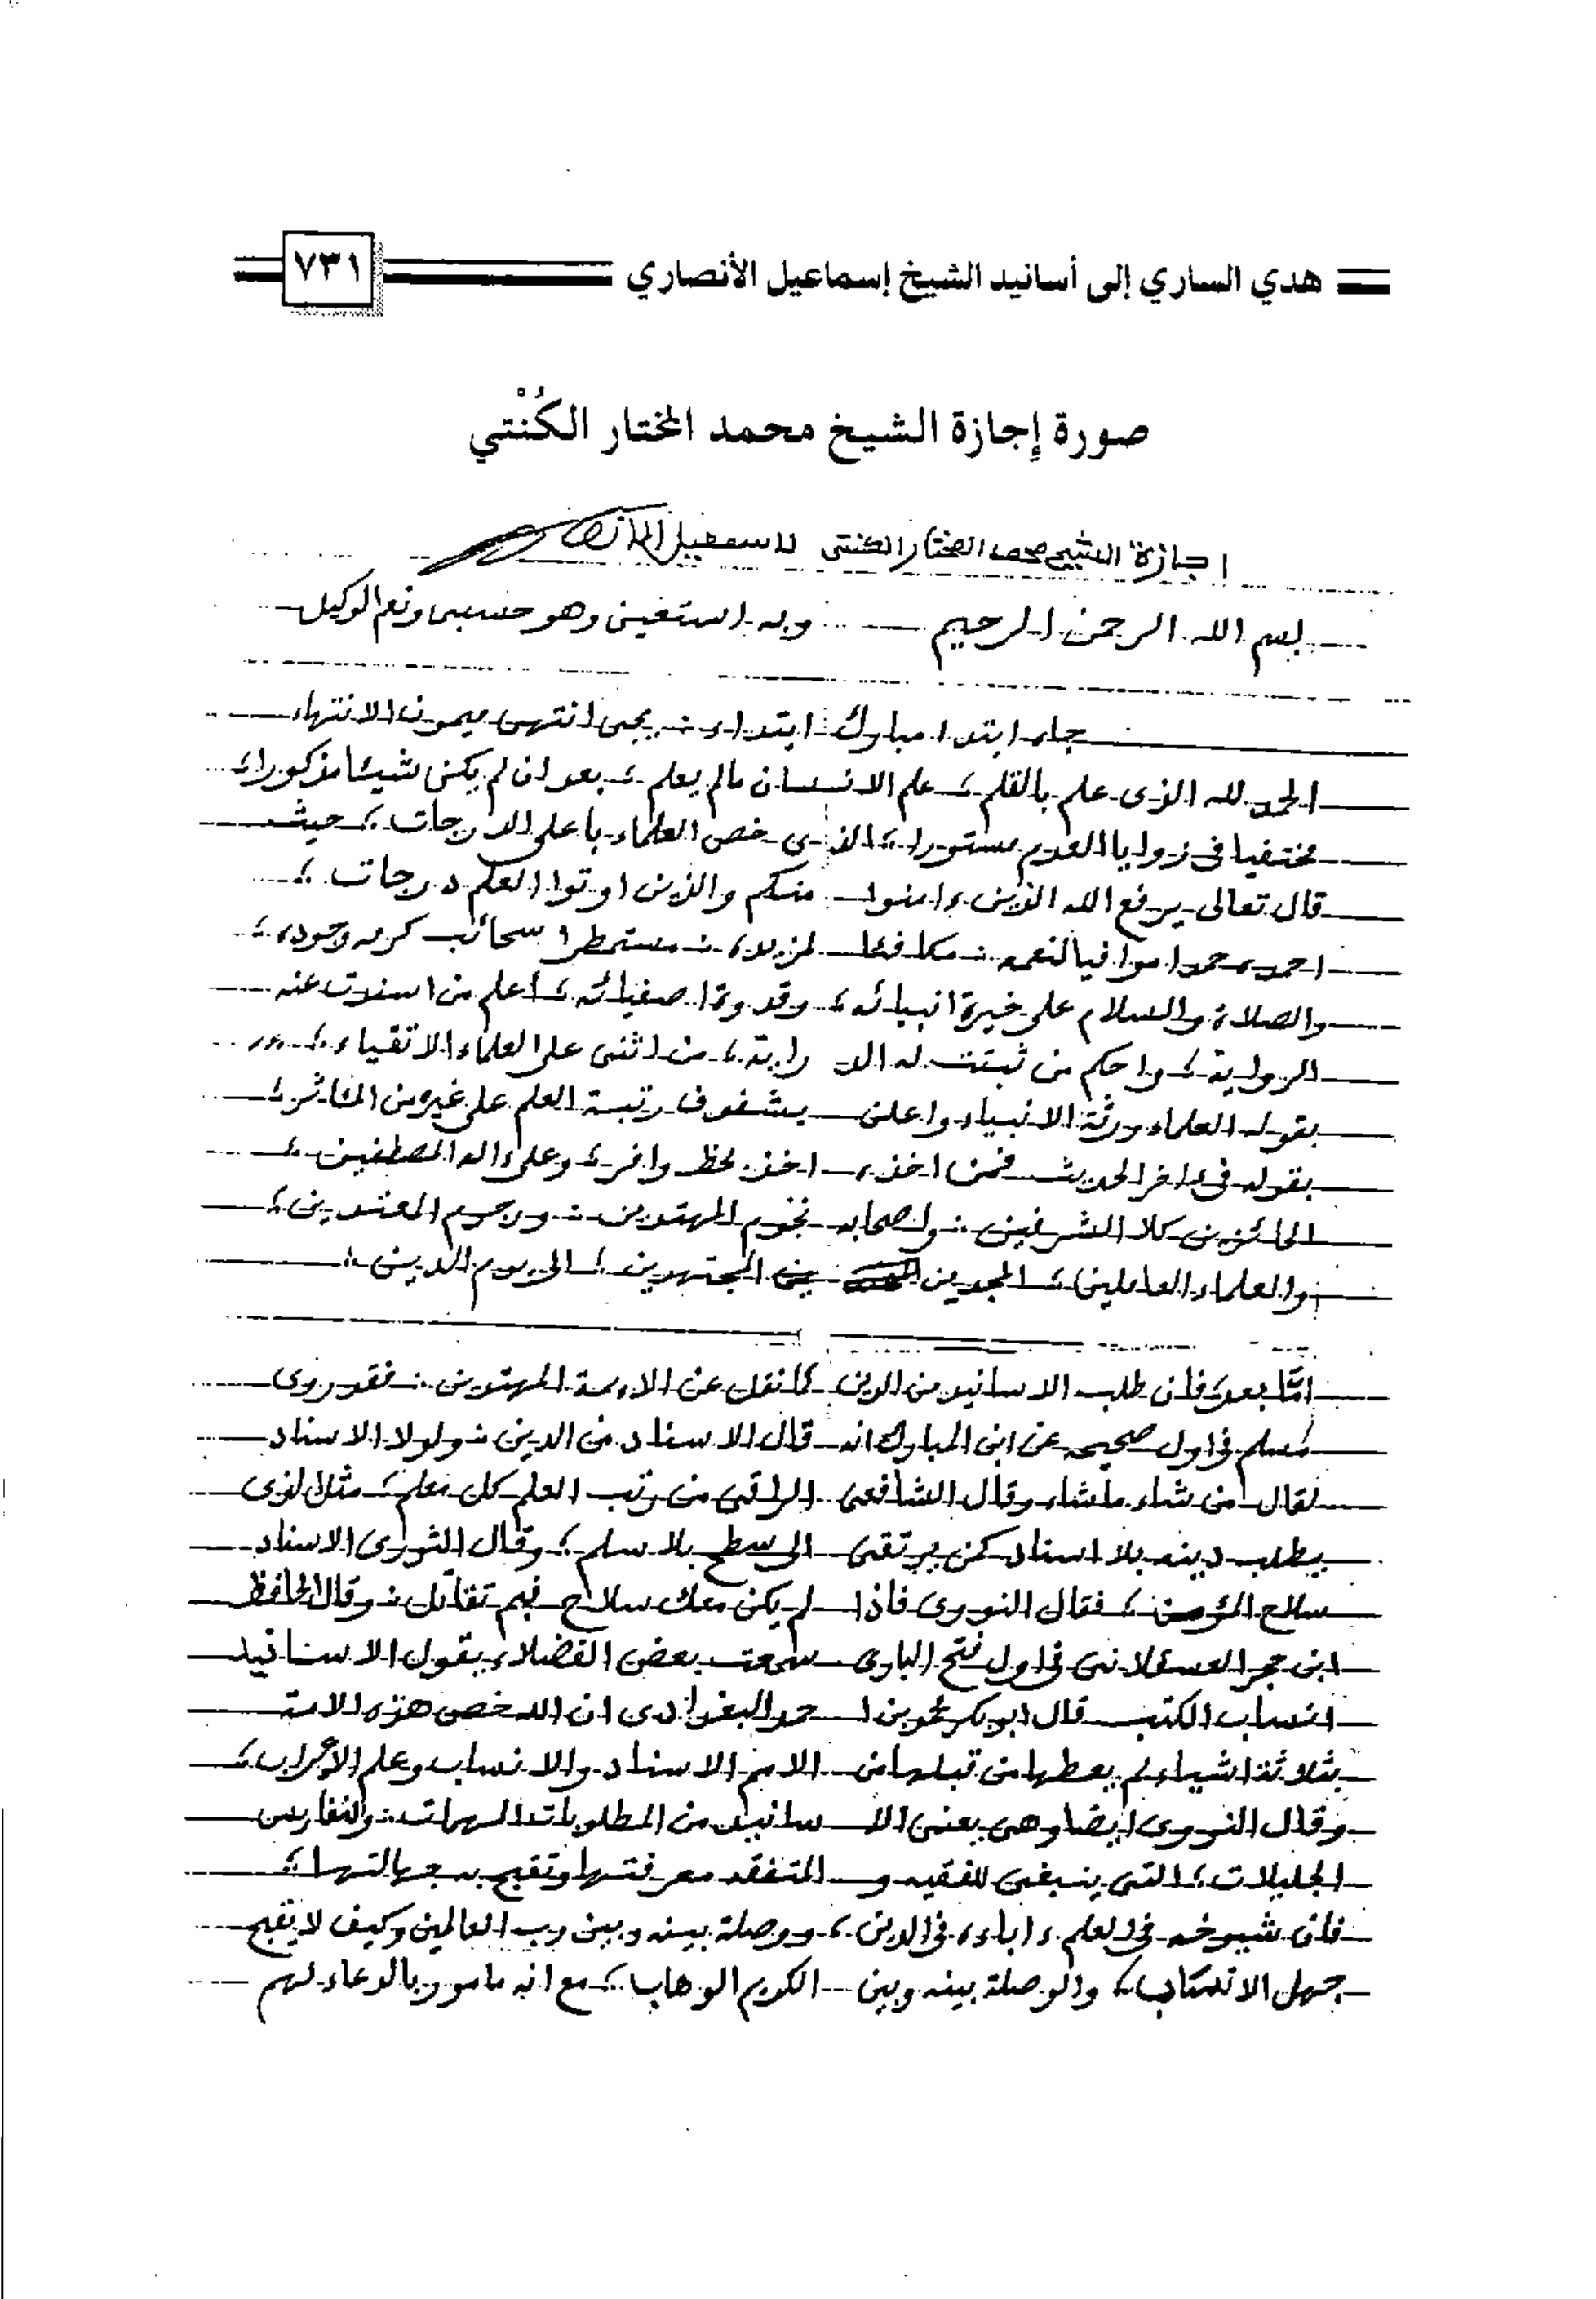 هدي الساري إلى أسانيد الشيخ إسماعيل الأنصاري
٧٣١
صورة إجازة الشيخ محمد المختار الكُنْتي
اجازة الشيخ محمد المختار الكنتى لاسمعيل الانصارى
بسم الله الرحمن الرحيم وبه استعين وهو حسبى ونعم الوكيل
جاء ابتدا مبارك ابتداء ؞ يجى انتهى ميمون الانتهاء
الحمد لله الذى علم بالقلم ؛ علم الانسان مالم يعلم ؛ بعد ان لم يكن شيئا مذكورا ؛
مختفيا فى زوايا العدم مستورا ؛ الذى خص العلماء باعلى الدرجات ؛ حيث
قال تعالى يرفع الله الذين ءامنوا منكم والذين اوتوا العلم درجات ؛
احمده حمدا موافيا لنعمه ؞ مكافئا لمزيده ؞ مستمطرا سحائب كرمه وجوده ؛
والصلاة والسلام على خيرة انبيائه ؛ وقدوة اصفيائه ؛ اعلم من اسندت عنه
الرواية ؛ واحكم من ثبتت له الدراية ؛ من اثنى على العلماء الاتقياء ؛
بقوله العلماء ورثة الانبياء واعلن بشفوف رتبة العلم على غيره من المئاثر ؛
بقوله فى ءاخر الحديث فمن اخذه اخذ بحظ وافر ؛ وعلى ءاله المصطفين ؛
الحائزين كلا الشرفين ؞ واصحابه نجوم المهتدين ؞ ورجوم المعتدين ؛
والعلماء العاملين ؛ المجدين المجتهدين ؛ الى يوم الدين ؞
امّا بعد ؛ فان طلب الاسانيد من الدين كما نقل عن الائمة المهتدين ؞ فقد روى
مسلم فى اول صحيحه عن ابن المبارك انه قال الاسناد من الدين ؞ ولولا الاسناد
لقال من شاء ما شاء وقال الشافعى الراقى من رتب العلم كل معلم ؛ مثل الذى
يطلب دينه بلا اسناد كمن يرتقى الى سطح بلا سلم ؛ وقال الثورى الاسناد
سلاح المؤمن ؛ فقال النووى فاذا لم يكن معك سلاح فبم تقاتل ؞ وقال الحافظ
ابن حجر العسقلانى فى اول فتح البارى سمعت بعض الفضلاء يقول الاسانيد
انساب الكتب قال ابو بكر محمد بن احمد البغدادى ان الله خص هذه الامة
بثلاثة اشياء لم يعطها من قبلها من الامم الاسناد والانساب وعلم الاعراب ؛
وقال النووى ايضا وهى يعنى الاسانيد من المطلوبات المهمات ؞ والنفايس
الجليلات ؛ التى ينبغى للفقيه والمتفقه معرفتها وتقبح به جهالتها ؛
فان شيوخه فى العلم ءاباءه فى الدين ؛ ووصلة بينه وبين رب العالمين وكيف لا يقبح
جهل الانساب ؛ والوصلة بينه وبين الكريم الوهاب ؛ مع انه مامور بالدعاء لهم